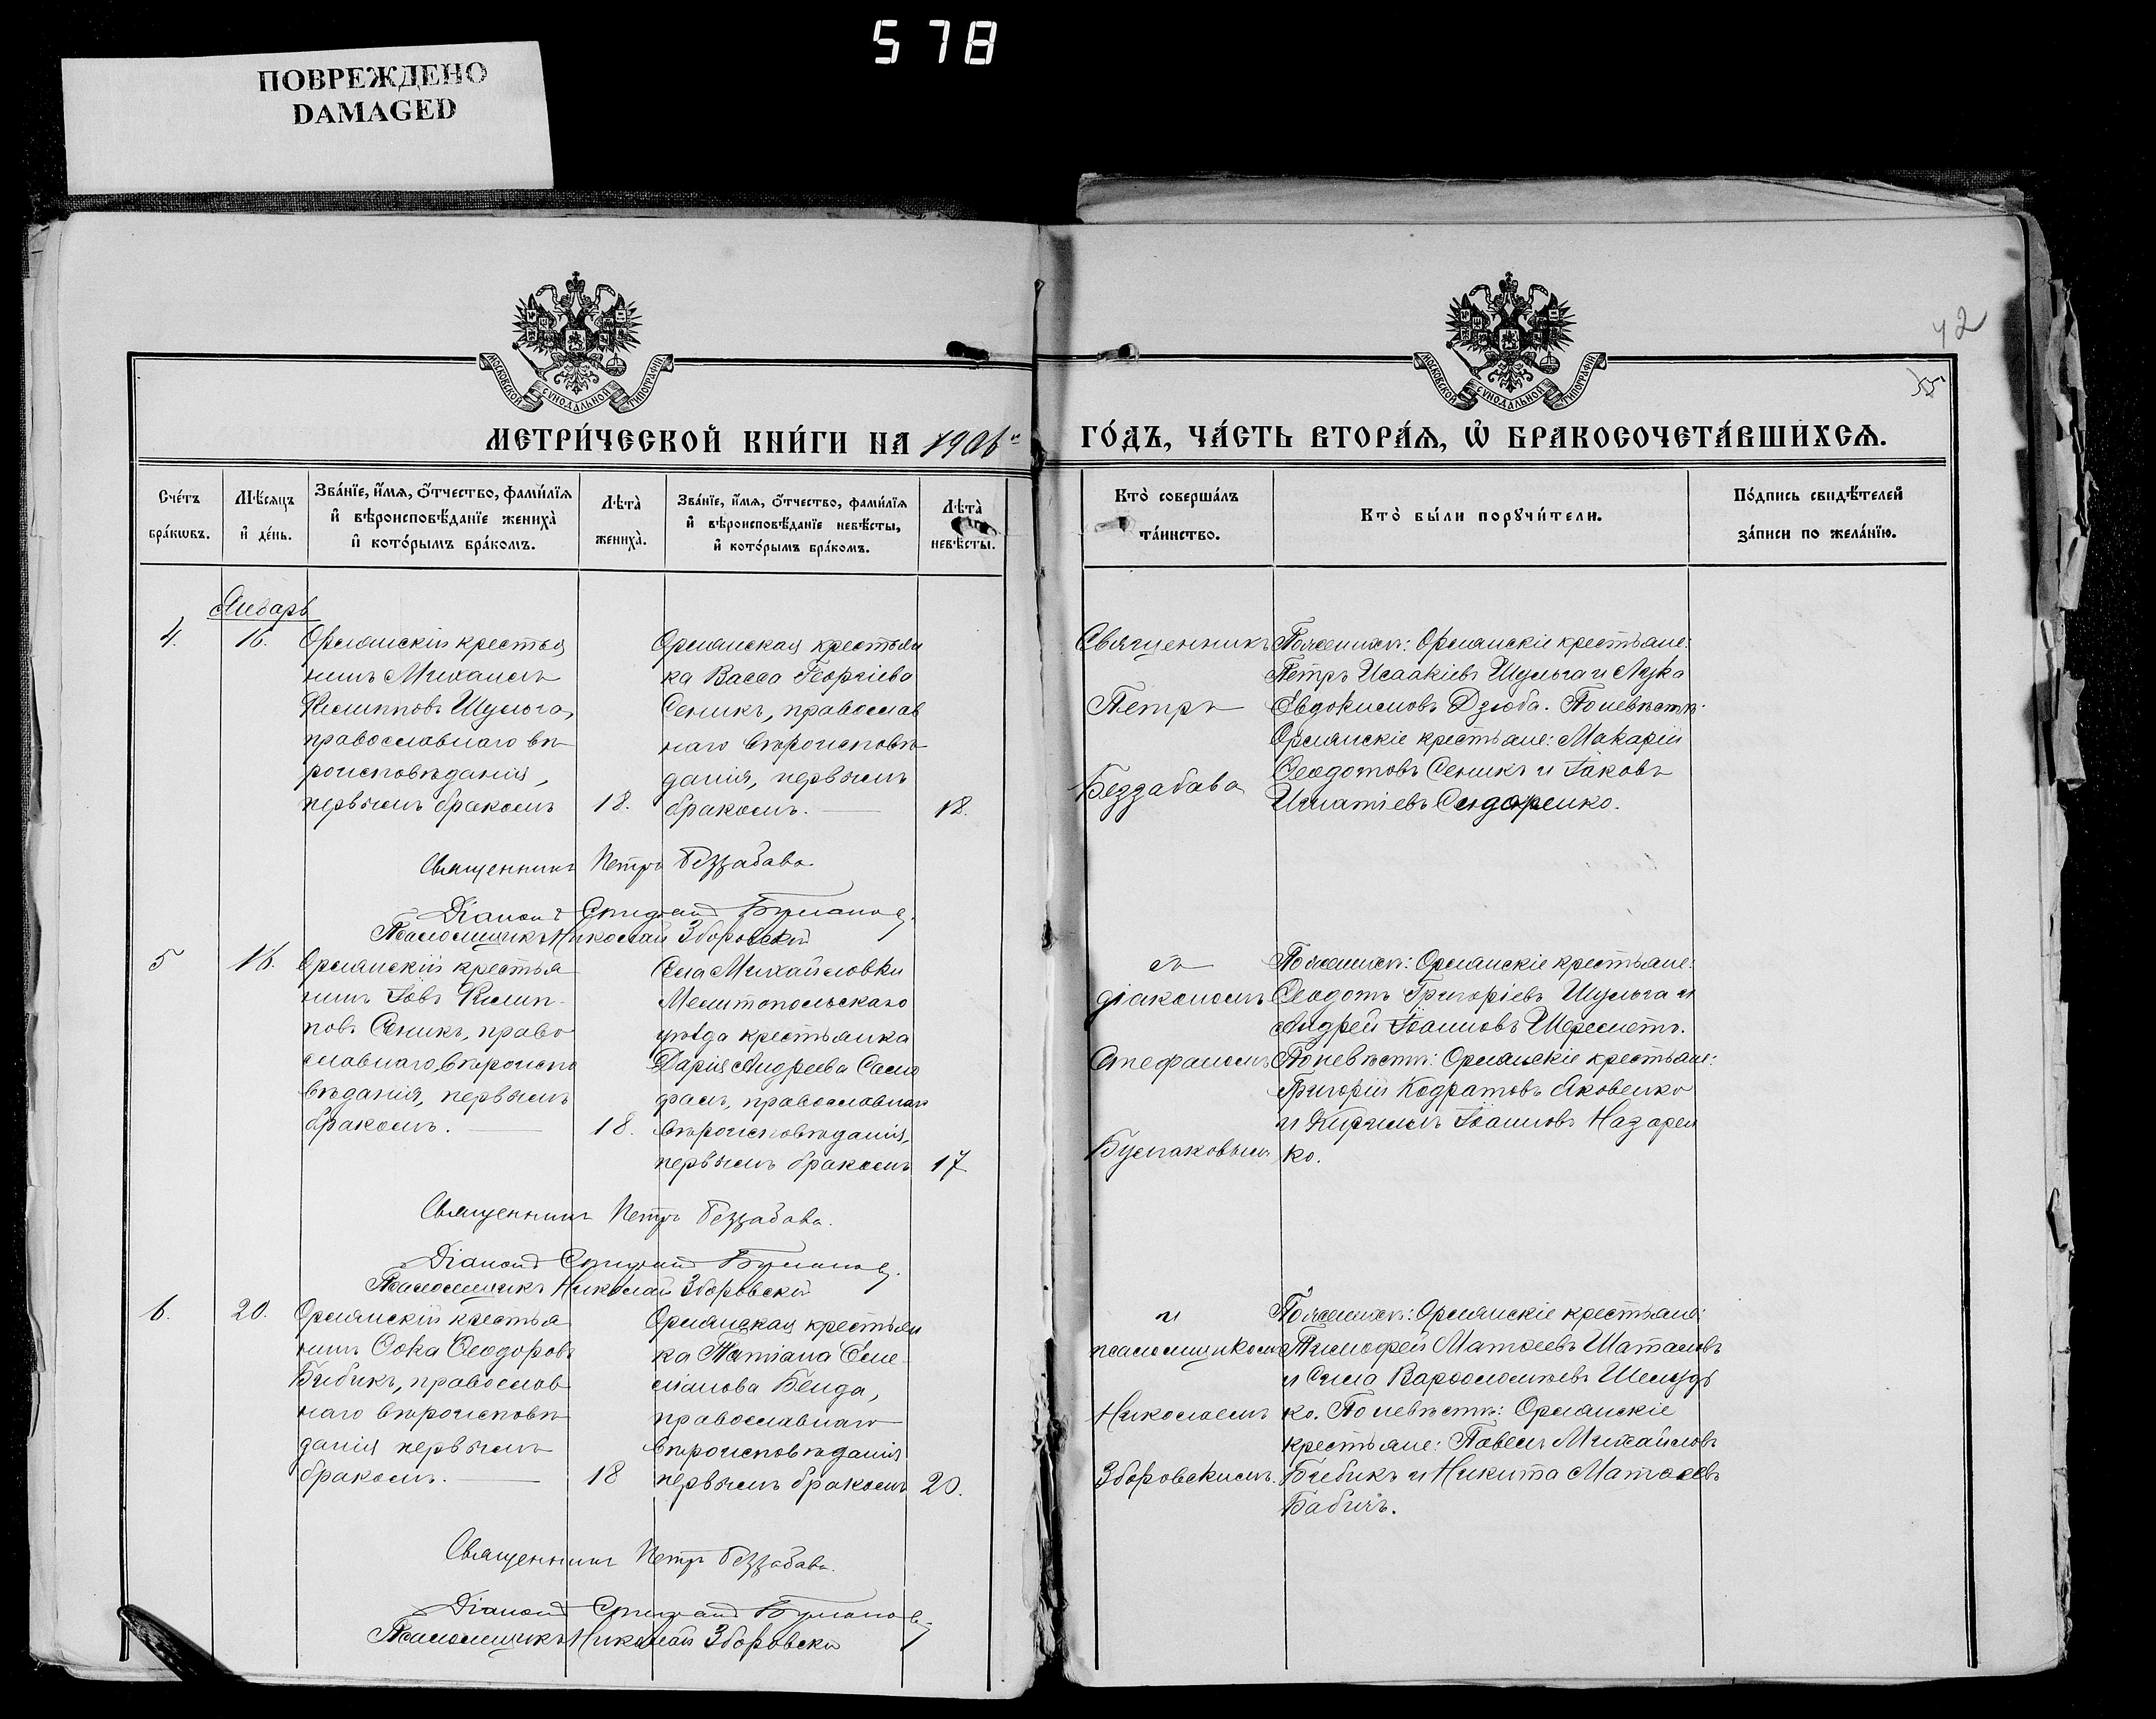 578
ПОВРЕЖДЕНО
DAMAGED
42
МОСКОВСКОЙ СѴНОДАЛЬНОЙ ТИПОГРАФІИ
МОСКОВСКОЙ СѴНОДАЛЬНОЙ ТИПОГРАФІИ
МЕТРИ́ЧЕСКОЙ КНИ́ГИ НА 1906й
ГО́ДЪ, ЧА́СТЬ ВТОРА́Я, Ѡ҆ БРАКОСОЧЕТА́ВШИХСЯ.
Сче́тъ бра́кѡвъ.
Мѣ́сяцъ и҆ де́нь.
Зва́нїе, и҆́мя, ѻ҆́тчество, фами́лїя
и҆ вѣроисповѣ́данїе жениха̀
и҆ кото́рымъ бра́комъ.
Лѣта̀ жениха̀.
Зва́нїе, и҆́мя, ѻ҆́тчество, фами́лїя
и҆ вѣроисповѣ́данїе невѣ́сты,
и҆ кото́рымъ бра́комъ.
Лѣта̀ невѣ́сты.
Кто̀ соверша́лъ
та́инство.
Кто̀ бы́ли порꙋчи́тели.
По́дпись свидѣ́телей
за́писи по жела́нїю.
Январь
4.
16.
Орлянскій крестья
нинъ Михаилъ
Филипповъ Шульга,
православнаго вѣ
роисповѣданія,
первымъ бракомъ
18.
Орлянская крестьян
ка Васса Георгіева
Сеникъ, православ
наго вѣроисповѣ
данія, первымъ
бракомъ.
18.
Священникъ
Петръ
Беззабава
По женихѣ: Орлянскіе крестьяне:
Петръ Исаакіевъ Шульга и Лука
Евдокимовъ Дзюба. По невѣстѣ:
Орлянскіе крестьяне: Макарій
Ѳеодотовъ Сеникъ и Іаковъ
Игнатіевъ Сидоренко.
Священникъ Петръ Беззабава.
Діаконъ
Псаломщикъ Николай Зборовскій
5
16.
Орлянскій крестья
нинъ Іовъ Филип-
повъ Сеникъ, право
славнаго вѣроиспо
вѣданія, первымъ
бракомъ.
18.
Села Михайловки
Мелитопольскаго
уѣзда крестьянка
Дарія Андреева
православнаго
вѣроисповѣданія,
первымъ бракомъ
17
съ
діакономъ
Стефаномъ
По женихѣ: Орлянскіе крестьяне:
Ѳеодотъ Григоріевъ Шульга и
Андрей Іоанновъ Шереметъ.
По невѣстѣ: Орлянскіе крестьяне:
Григорій Кодратовъ Яковенко
и Кириллъ Іоанновъ Назарен
ко.
Священникъ Петръ Беззабава.
Діаконъ
Псаломщикъ Николай Зборовскій
6.
20.
Орлянскій крестья
нинъ Ѳока Ѳеодоровъ
Бибикъ, православ
наго вѣроисповѣ
данія первымъ
бракомъ.
18
Орлянская крестьян
ка Татіана Еме-
ліанова Бенда,
православнаго
вѣроисповѣданія
первымъ бракомъ
20.
и
псаломщикомъ
Николаемъ
Зборовскимъ.
По женихѣ: Орлянскіе крестьяне:
Тимофей Матѳеевъ Шаталовъ
и Сила Варѳоломѣевъ Шелудь
ко. По невѣстѣ: Орлянскіе
крестьяне: Павелъ Михайловъ
Бибикъ и Никита Матѳеевъ
Бабичъ.
Священникъ Петръ Беззабава.
Діаконъ
Псаломщикъ Николай Зборовскій